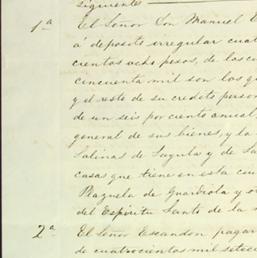 siguientes
1ª El Señor Don Manuel E
á deposito irregular cuat
cientos ocho pesos, de los cu
cincuenta mil son los qu
y el resto de su credito person
de un seis por ciento anual,
general de sus bienes, y la
Salinas de Sayula y de la
casas que tiene en esta ciu
Plazuela de Guardiola y
del Espiritu Santo de la
2ª El Señor Escandon pagar
de cuatrocientos mil setec